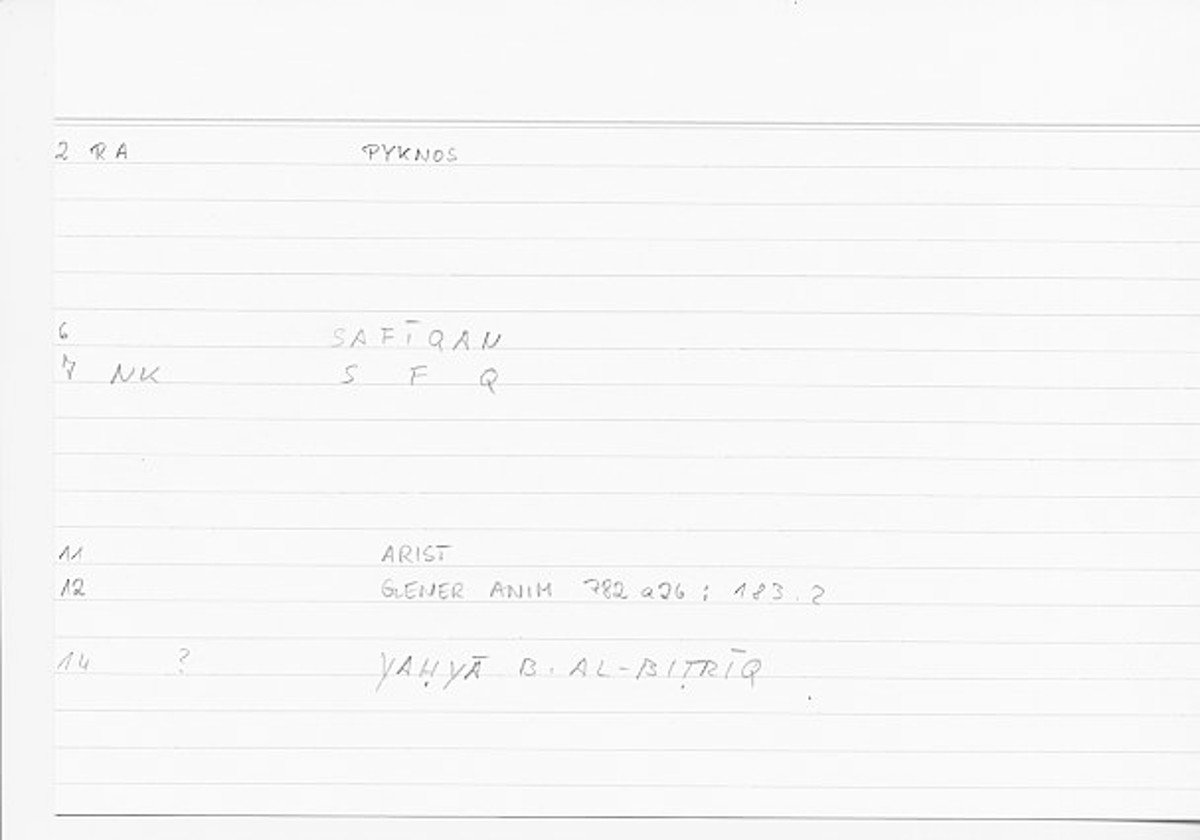 2 RA PYKNOS
6 SAFĪQAN
7 NK S F Q
11 ARIST
12 GENER ANIM 782 a26 : 183.2
14 ? YAḤYĀ B. AL-BIṬRĪQ